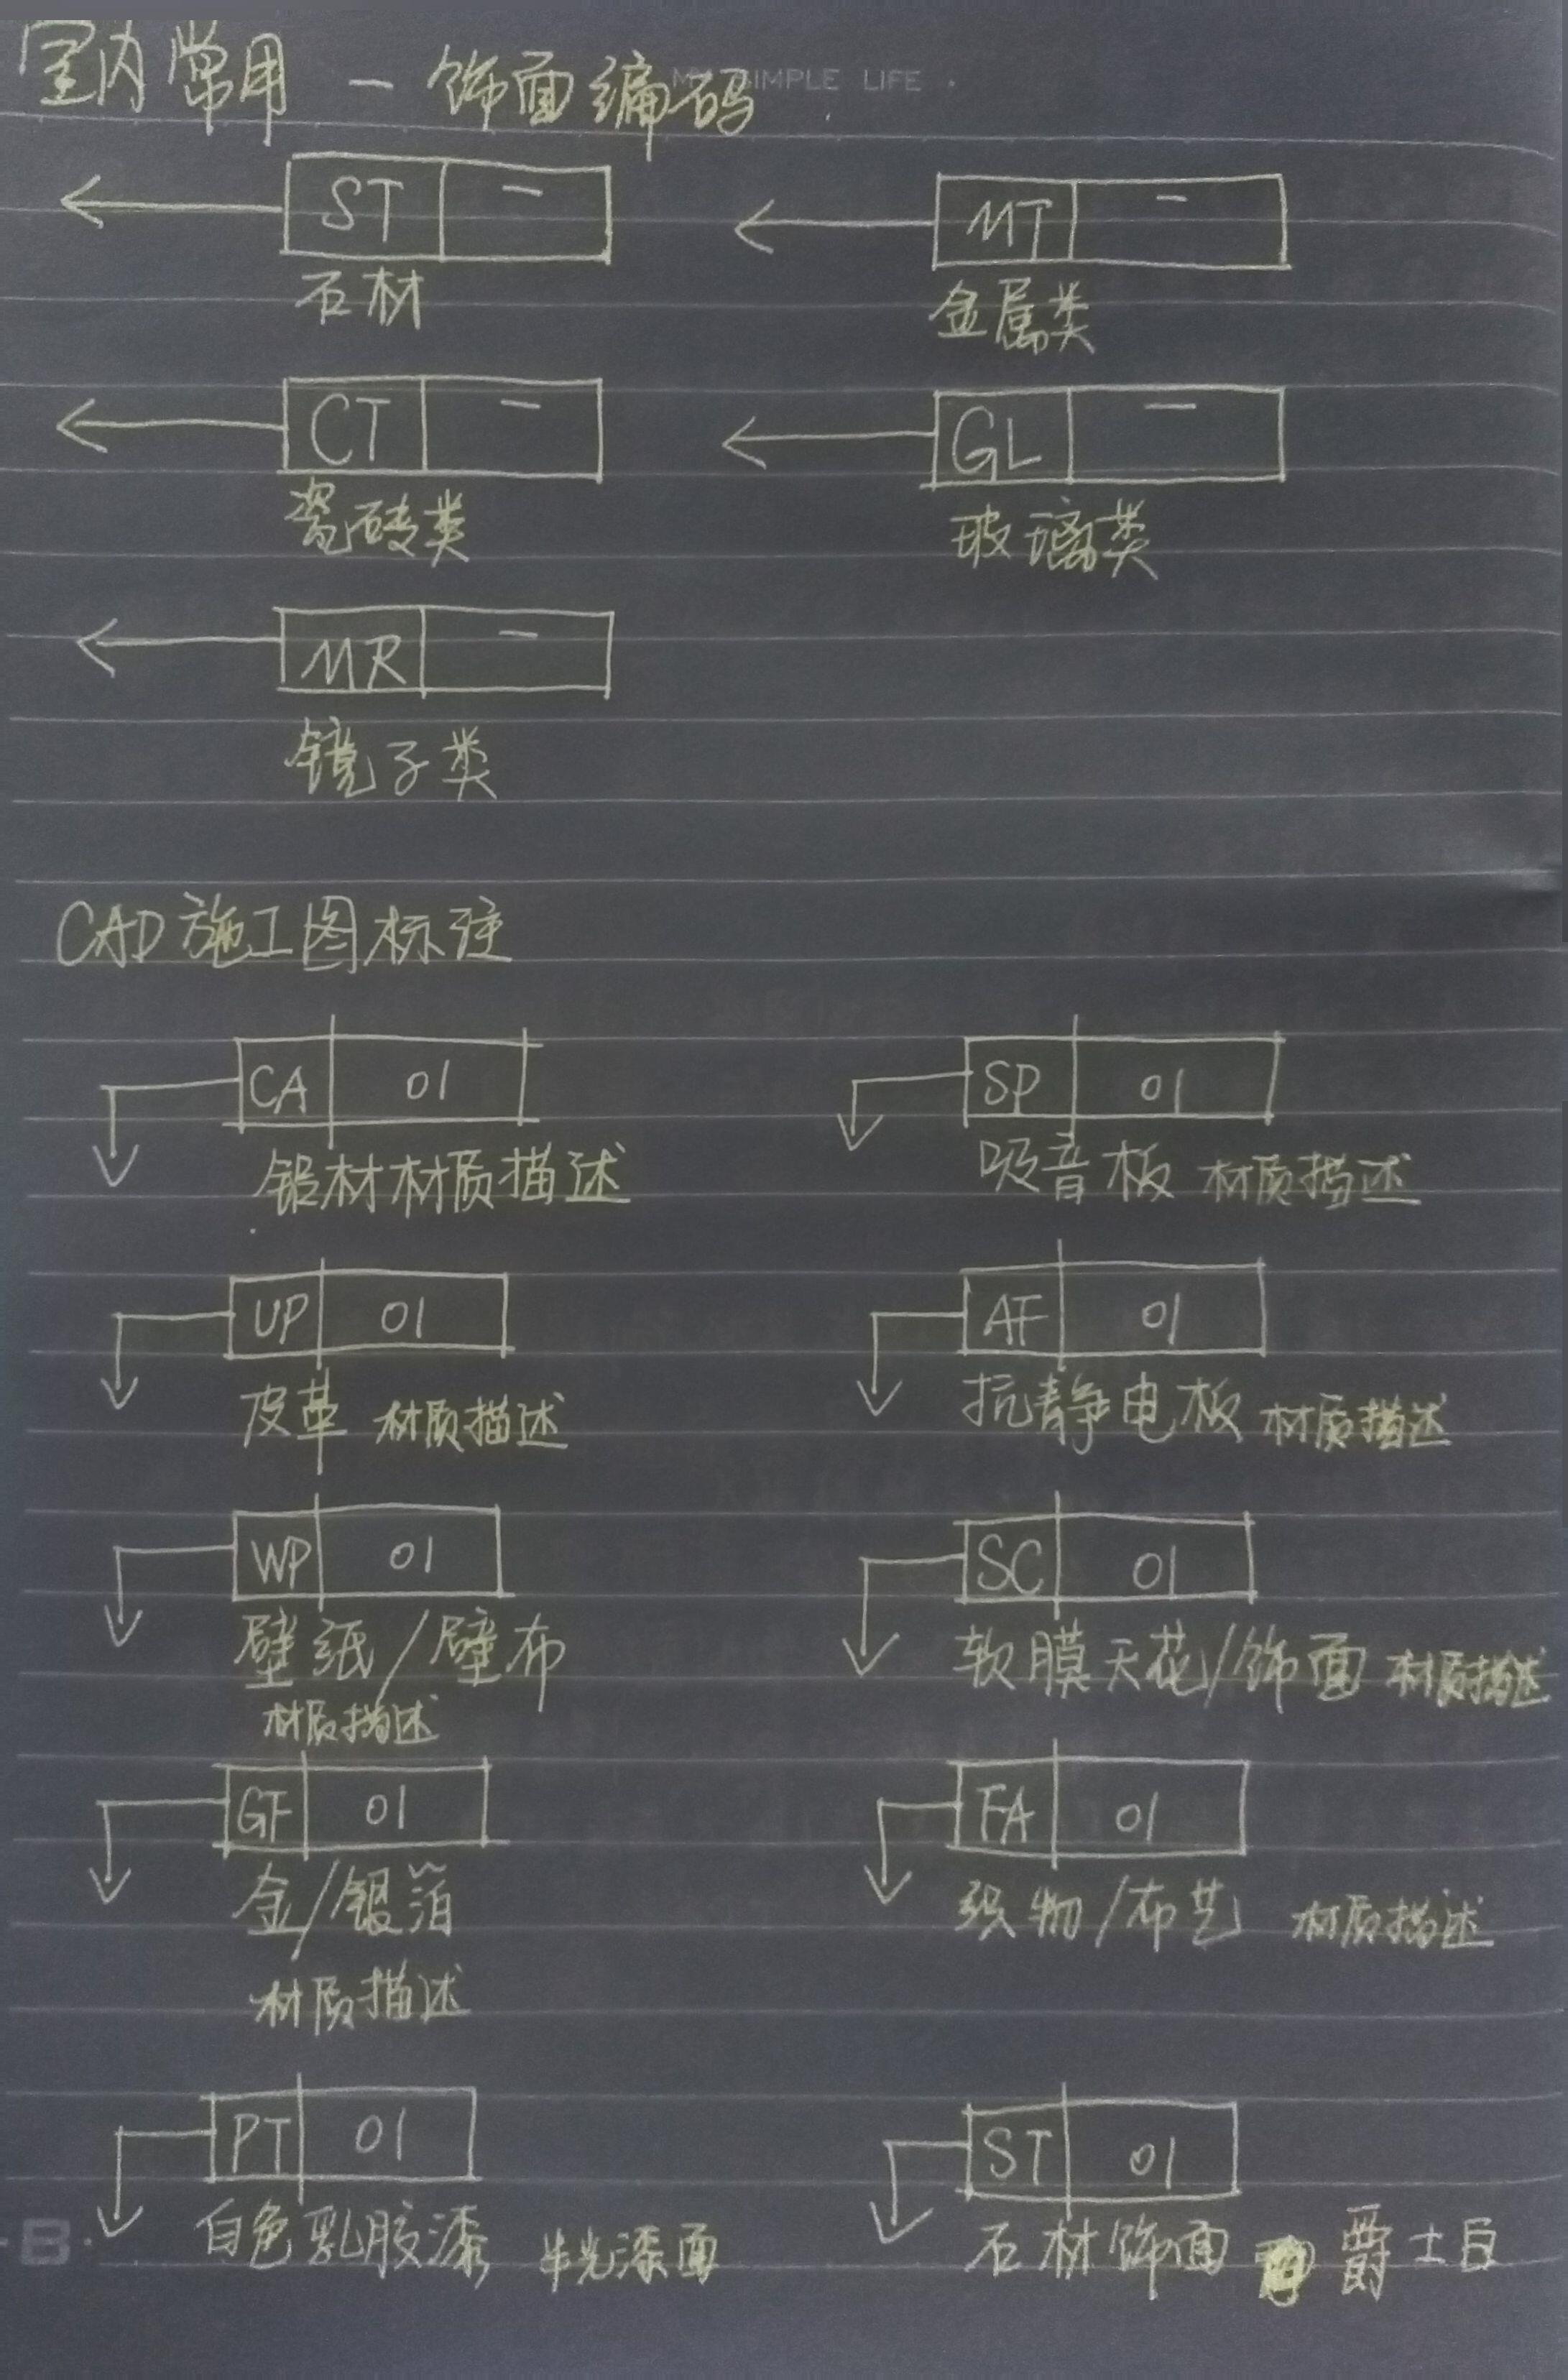 室内常用 — 饰面编码
SIMPLE LIFE .
ST —
MT —
石材
金属类
CT —
GL —
瓷砖类
玻璃类
MR —
镜子类
CAD施工图标注
CA 01
SP 01
铝材材质描述
吸音板 材质描述
UP 01
AF 01
皮革 材质描述
抗静电板 材质描述
WP 01
SC 01
壁纸/壁布
材质描述
软膜天花/饰面 材质描述
GF 01
FA 01
金/银箔
材质描述
织物/布艺 材质描述
PT 01
ST 01
白色乳胶漆 半光漆面
石材饰面 爵士白
·B·